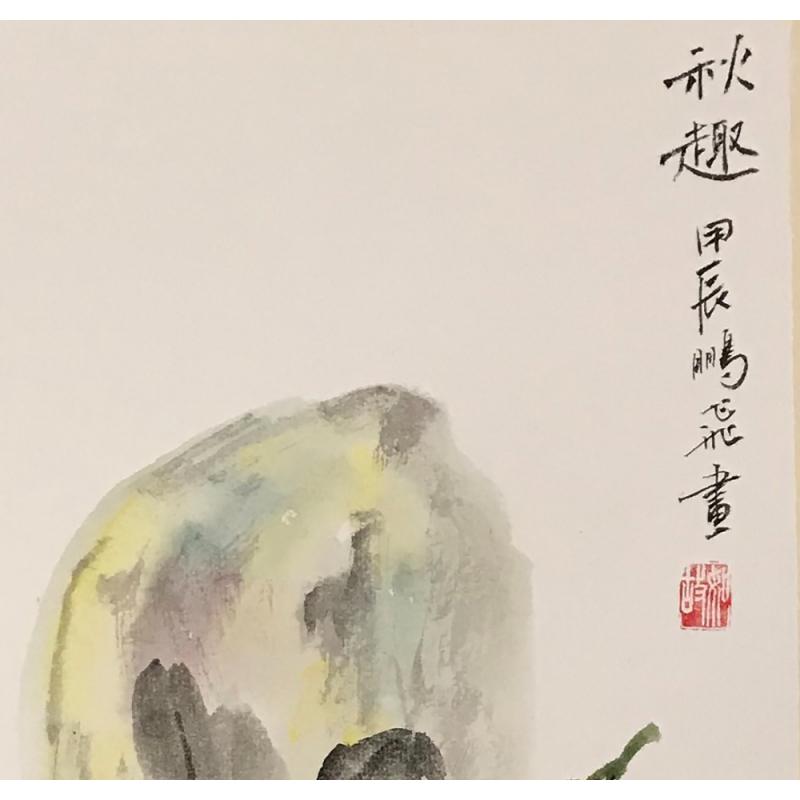 秋趣 甲辰鹏飛畫